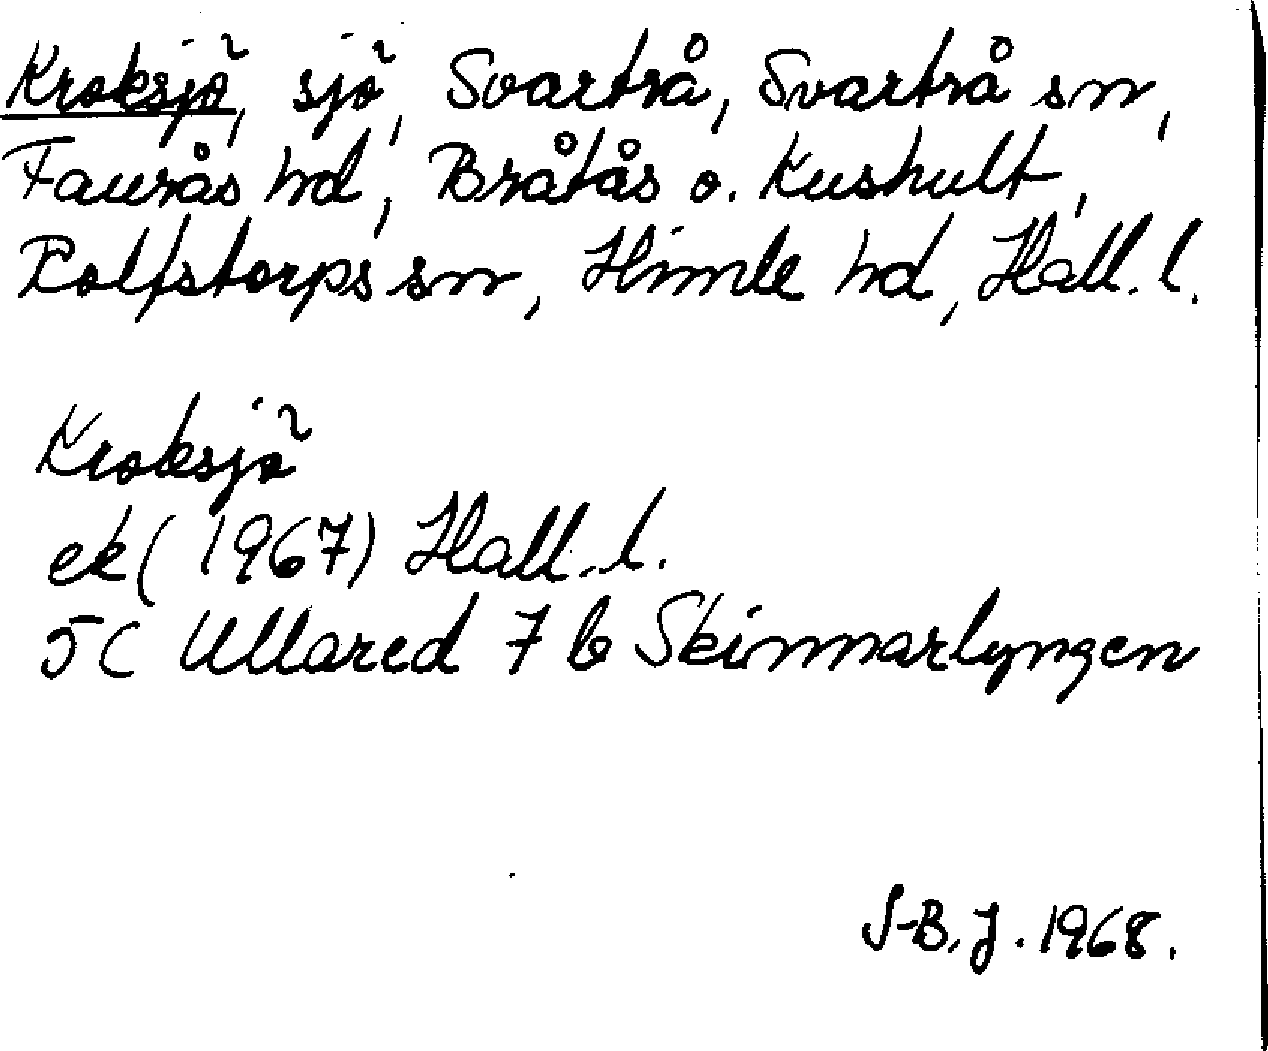 Kroksjö, sjö, Svartrå, Svartrå sn,
Faurås hd, Bråtås o. Kushult,
Rolfstorps sn, Himle hd, Hall. l.
Kroksjö
ek (1967) Hall. l.
5C Ullared 7 b Skinnarlyngen
S-B. J. 1968.